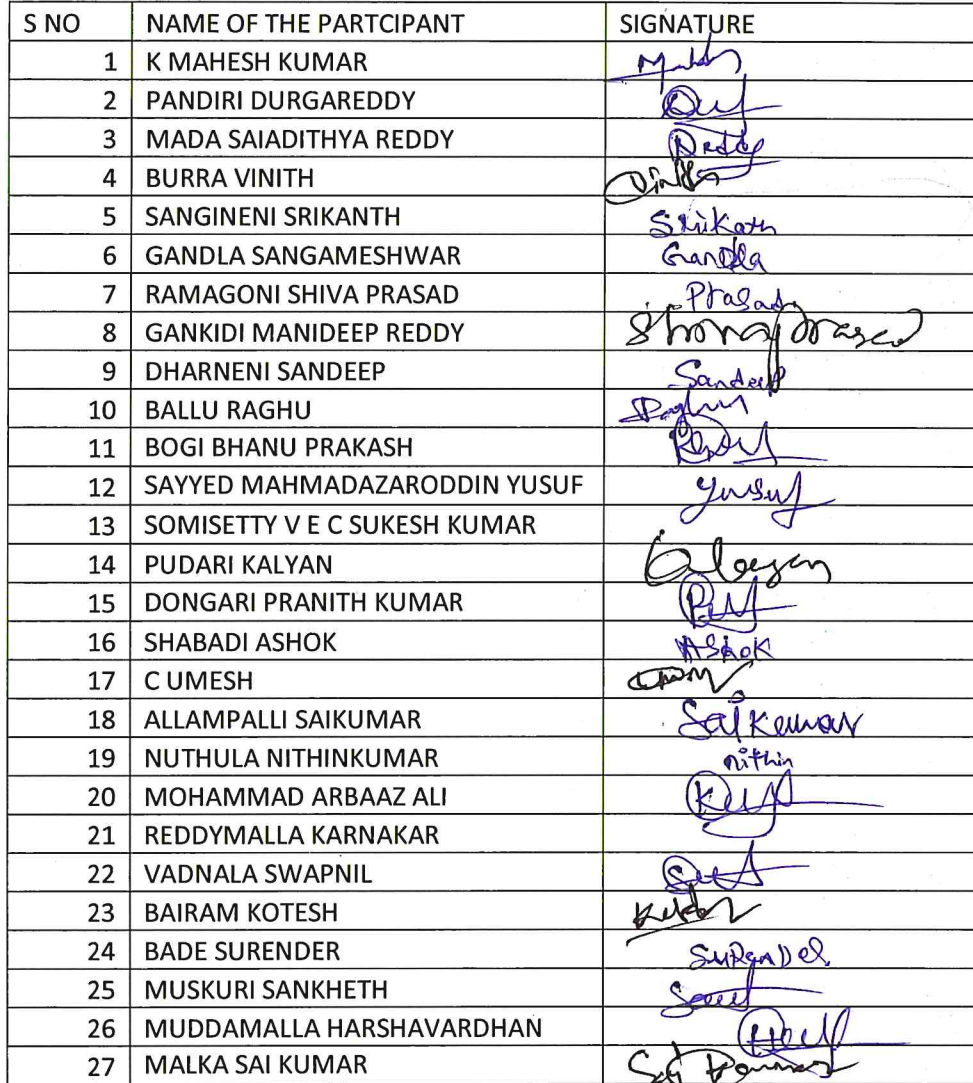 S NO NAME OF THE PARTCIPANT SIGNATURE
1 K MAHESH KUMAR
2 PANDIRI DURGAREDDY
3 MADA SAIADITHYA REDDY Reddy
4 BURRA VINITH
5 SANGINENI SRIKANTH Srikath
6 GANDLA SANGAMESHWAR Gandla
7 RAMAGONI SHIVA PRASAD Prasad
8 GANKIDI MANIDEEP REDDY
9 DHARNENI SANDEEP Sandeep
10 BALLU RAGHU Raghu
11 BOGI BHANU PRAKASH
12 SAYYED MAHMADAZARODDIN YUSUF Yusuf
13 SOMISETTY V E C SUKESH KUMAR
14 PUDARI KALYAN
15 DONGARI PRANITH KUMAR
16 SHABADI ASHOK AShok
17 C UMESH
18 ALLAMPALLI SAIKUMAR Sai Kumar
19 NUTHULA NITHINKUMAR nithin
20 MOHAMMAD ARBAAZ ALI
21 REDDYMALLA KARNAKAR
22 VADNALA SWAPNIL
23 BAIRAM KOTESH
24 BADE SURENDER
25 MUSKURI SANKHETH
26 MUDDAMALLA HARSHAVARDHAN
27 MALKA SAI KUMAR Sai Kumar